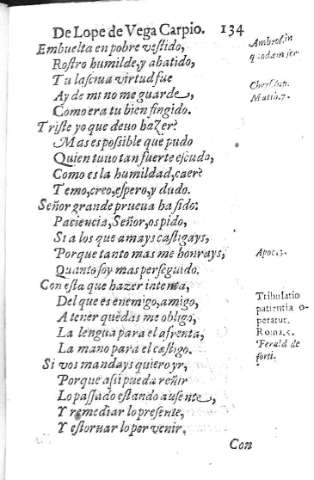 De Lope de Vega Carpio. 134
Embuelta en pobre vestido,
Rostro humilde, y abatido,
Tu lasciua virtud fue
Ay de mi no me guarde,
Como era tu bien fingido.
Triste yo que deuo hazer?
Mas es possible que pudo
Quien tuuo tan fuerte escudo,
Como es la humildad, caer?
Temo, creo, espero, y dudo.
Señor grande prueua ha sido:
Paciencia, Señor, os pido,
Si a los que amays castigays,
Porque tanto mas me honrays,
Quanto soy mas perseguido.
Con esta que hazer intenta,
Del que es enemigo, amigo,
A tener quedas me obligo,
La lengua para el afrenta,
La mano para el castigo.
Si vos mandays quiero yr,
Porque assi pueda reñir
Lo passado estando ausente,
Y remediar lo presente,
Y estoruar lo por venir.
Con
Ambros. in
quodam ser
Matth. 7.
Apoc. 3.
Tribulatio
patientia o-
peratur.
Roma. 5.
forti.